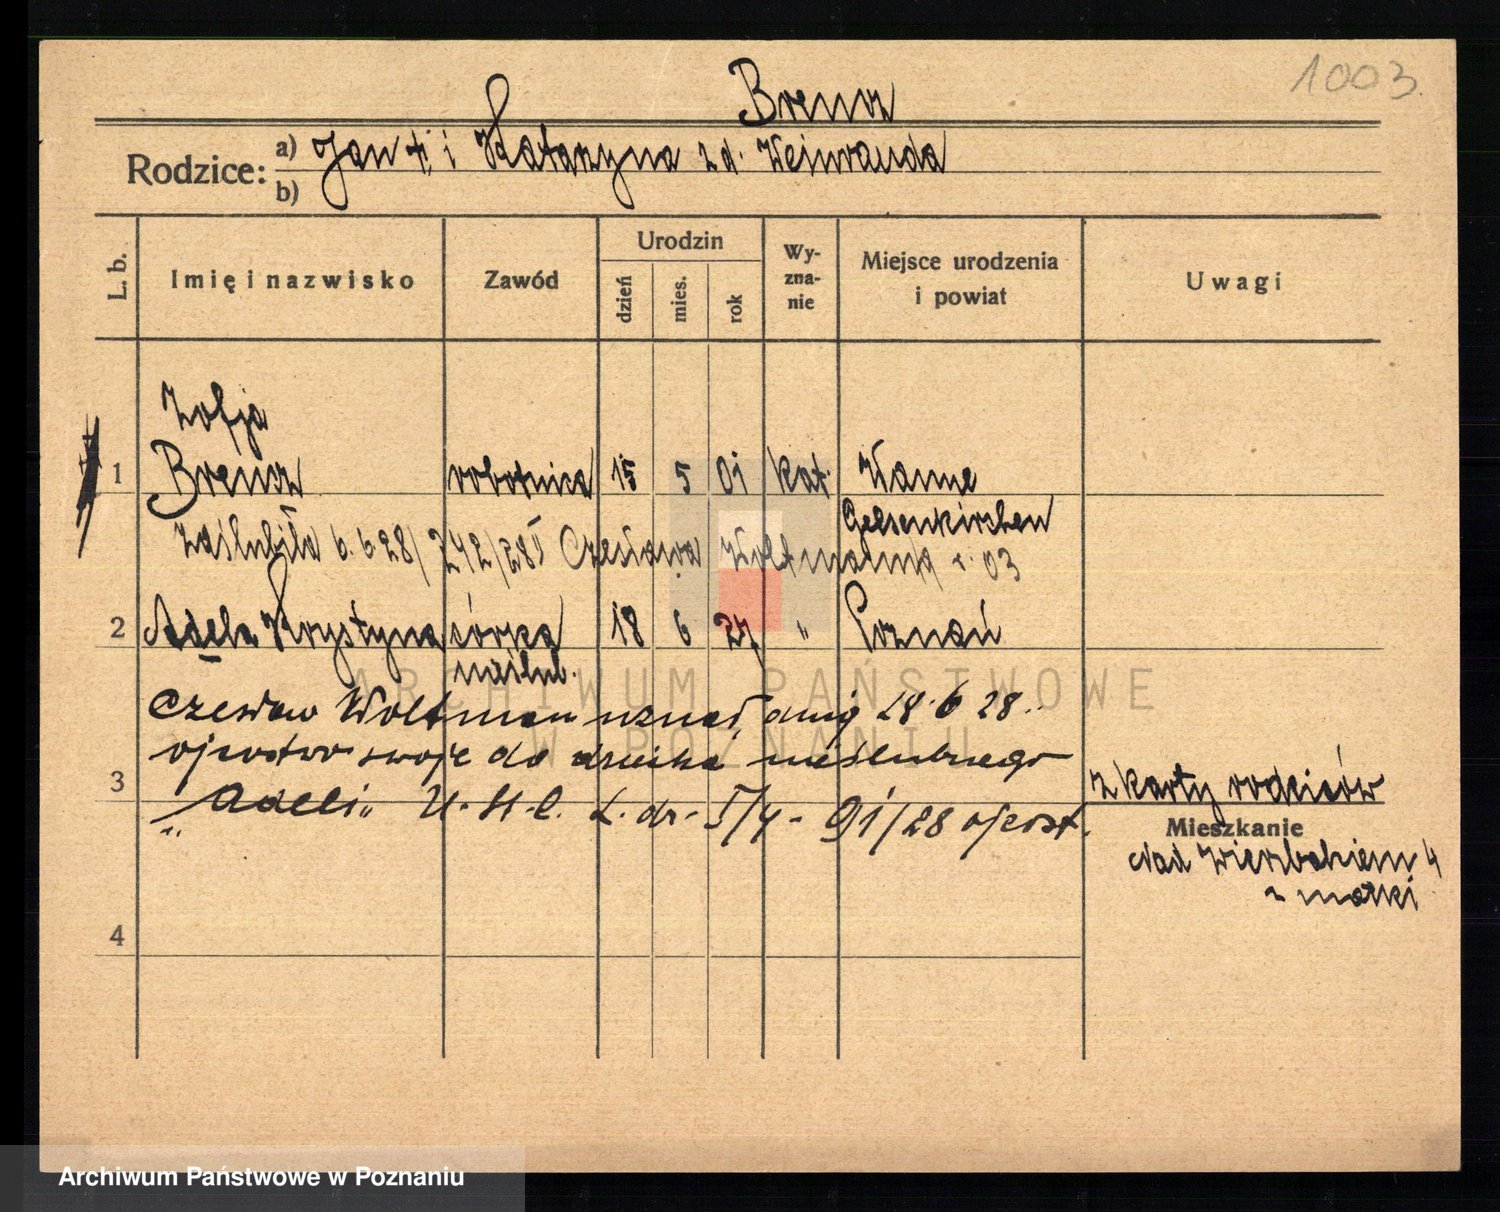 1003.
Brencz
Rodzice: a) Jan † i Katarzyna z d. Weinrauda
b)
L. b.
Imię i nazwisko
Zawód
Urodzin
dzień
mies.
rok
Wy-
zna-
nie
Miejsce urodzenia
i powiat
Uwagi
Zofja
1 Brencz robotnica 15 5 01 kat. Wanne
Gelsenkirchen
Zaślubiła 6.6 28/ 242/28 Czesława Woltmanna r. 03
2 Adela Krystyna córka 18 6 27 " Poznań
nieślub.
Czesław Woltman uznał dnia 28.6 28.
ojcostwo swoje do dziecka nieślubnego
3
"Adeli" U. St. C. L. dz. I/4 - 91/28 ojcost.
z karty rodziców
Mieszkanie
Nad Wierzbakiem 4
u matki
4
ARCHIWUM PAŃSTWOWE
W POZNANIU
Archiwum Państwowe w Poznaniu